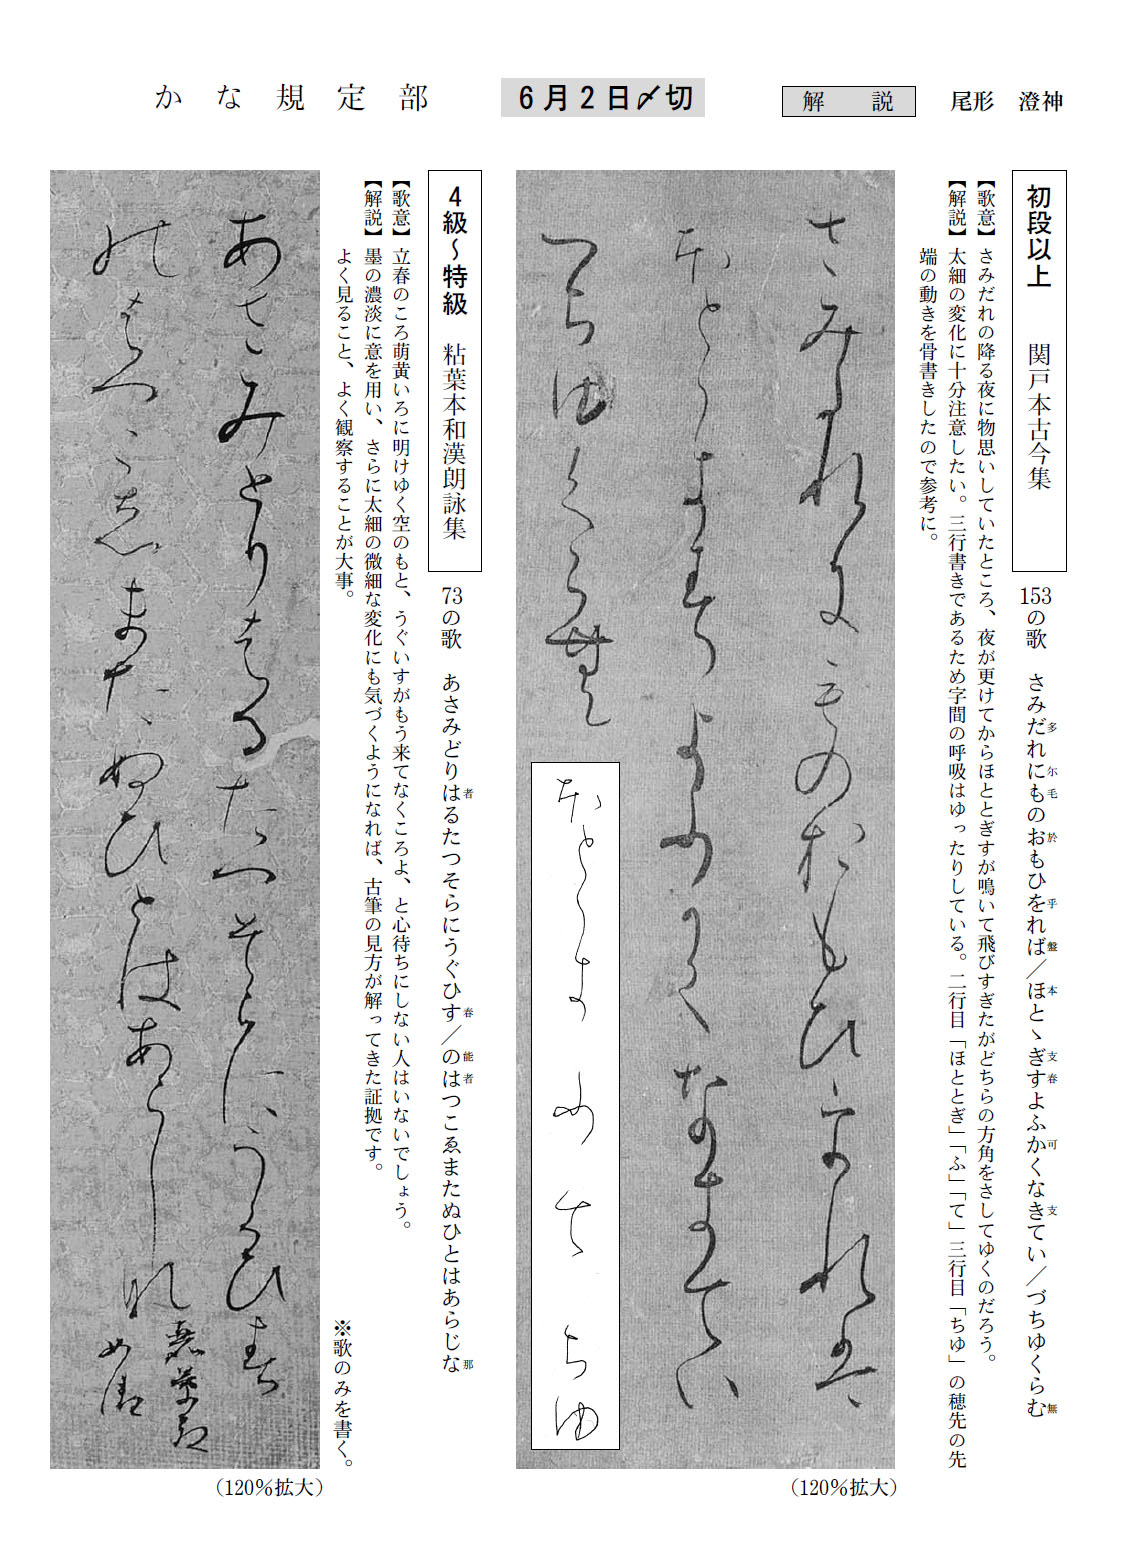 かな規定部
6月2日〆切
解説
尾形 澄神
初段以上 関戸本古今集
153の歌 さみだれにものおもひをれば／ほとゝぎすよふかくなきてい／づちゆくらむ
多 尓 毛 於 乎 盤 本 支 春 可 支 無
【歌意】さみだれの降る夜に物思いしていたところ、夜が更けてからほととぎすが鳴いて飛びすぎたがどちらの方角をさしてゆくのだろう。
【解説】太細の変化に十分注意したい。三行書きであるため字間の呼吸はゆったりしている。二行目「ほととぎ」「ふ」「て」三行目「ちゆ」の穂先の先
端の動きを骨書きしたので参考に。
さみ多れ尓毛の於もひ乎れ盤
本とゝ支春よふ可くなきてい
つちゆくら無
本とゝき ふ て ちゆ
（120％拡大）
4級～特級 粘葉本和漢朗詠集
73の歌 あさみどりはるたつそらにうぐひす／のはつこゑまたぬひとはあらじな
者 春 能 者 那
【歌意】立春のころ萌黄いろに明けゆく空のもと、うぐいすがもう来てなくころよ、と心待ちにしない人はいないでしょう。
【解説】墨の濃淡に意を用い、さらに太細の微細な変化にも気づくようになれば、古筆の見方が解ってきた証拠です。
よく見ること、よく観察することが大事。
※歌のみを書く。
あさみとり者るたつそらにうくひ春
能者つこゑまたぬひとはあらし那
（120％拡大）